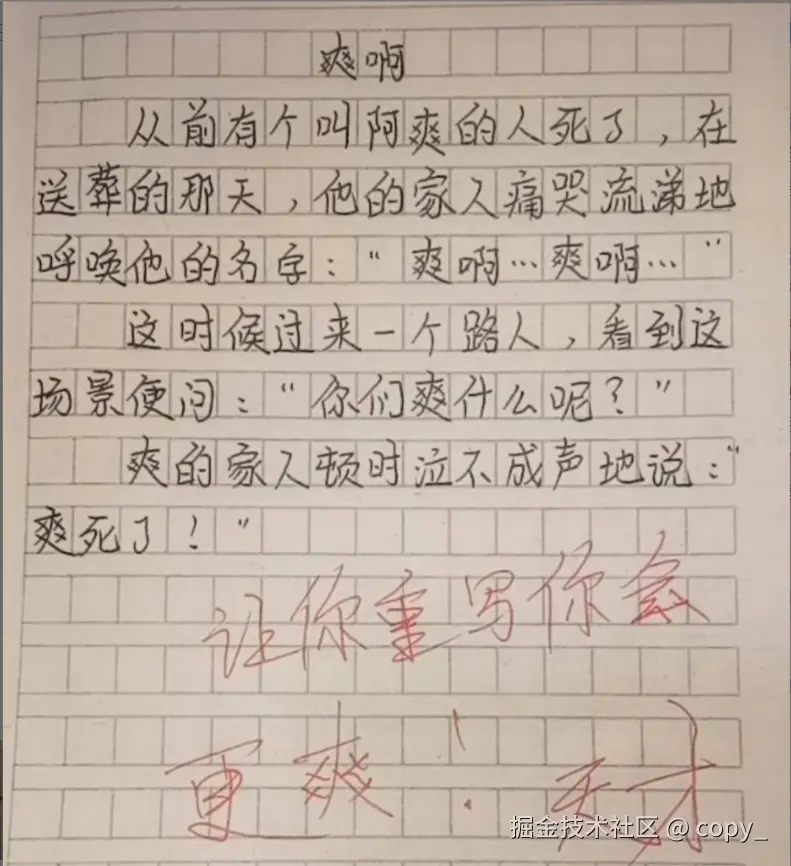 爽啊
从前有个叫阿爽的人死了，在
送葬的那天，他的家人痛哭流涕地
呼唤他的名字：“爽啊…爽啊…”
这时候过来一个路人，看到这
场景便问：“你们爽什么呢？”
爽的家人顿时泣不成声地说：“
爽死了！”
让你重写你会
更爽！天才
掘金技术社区 @ copy_